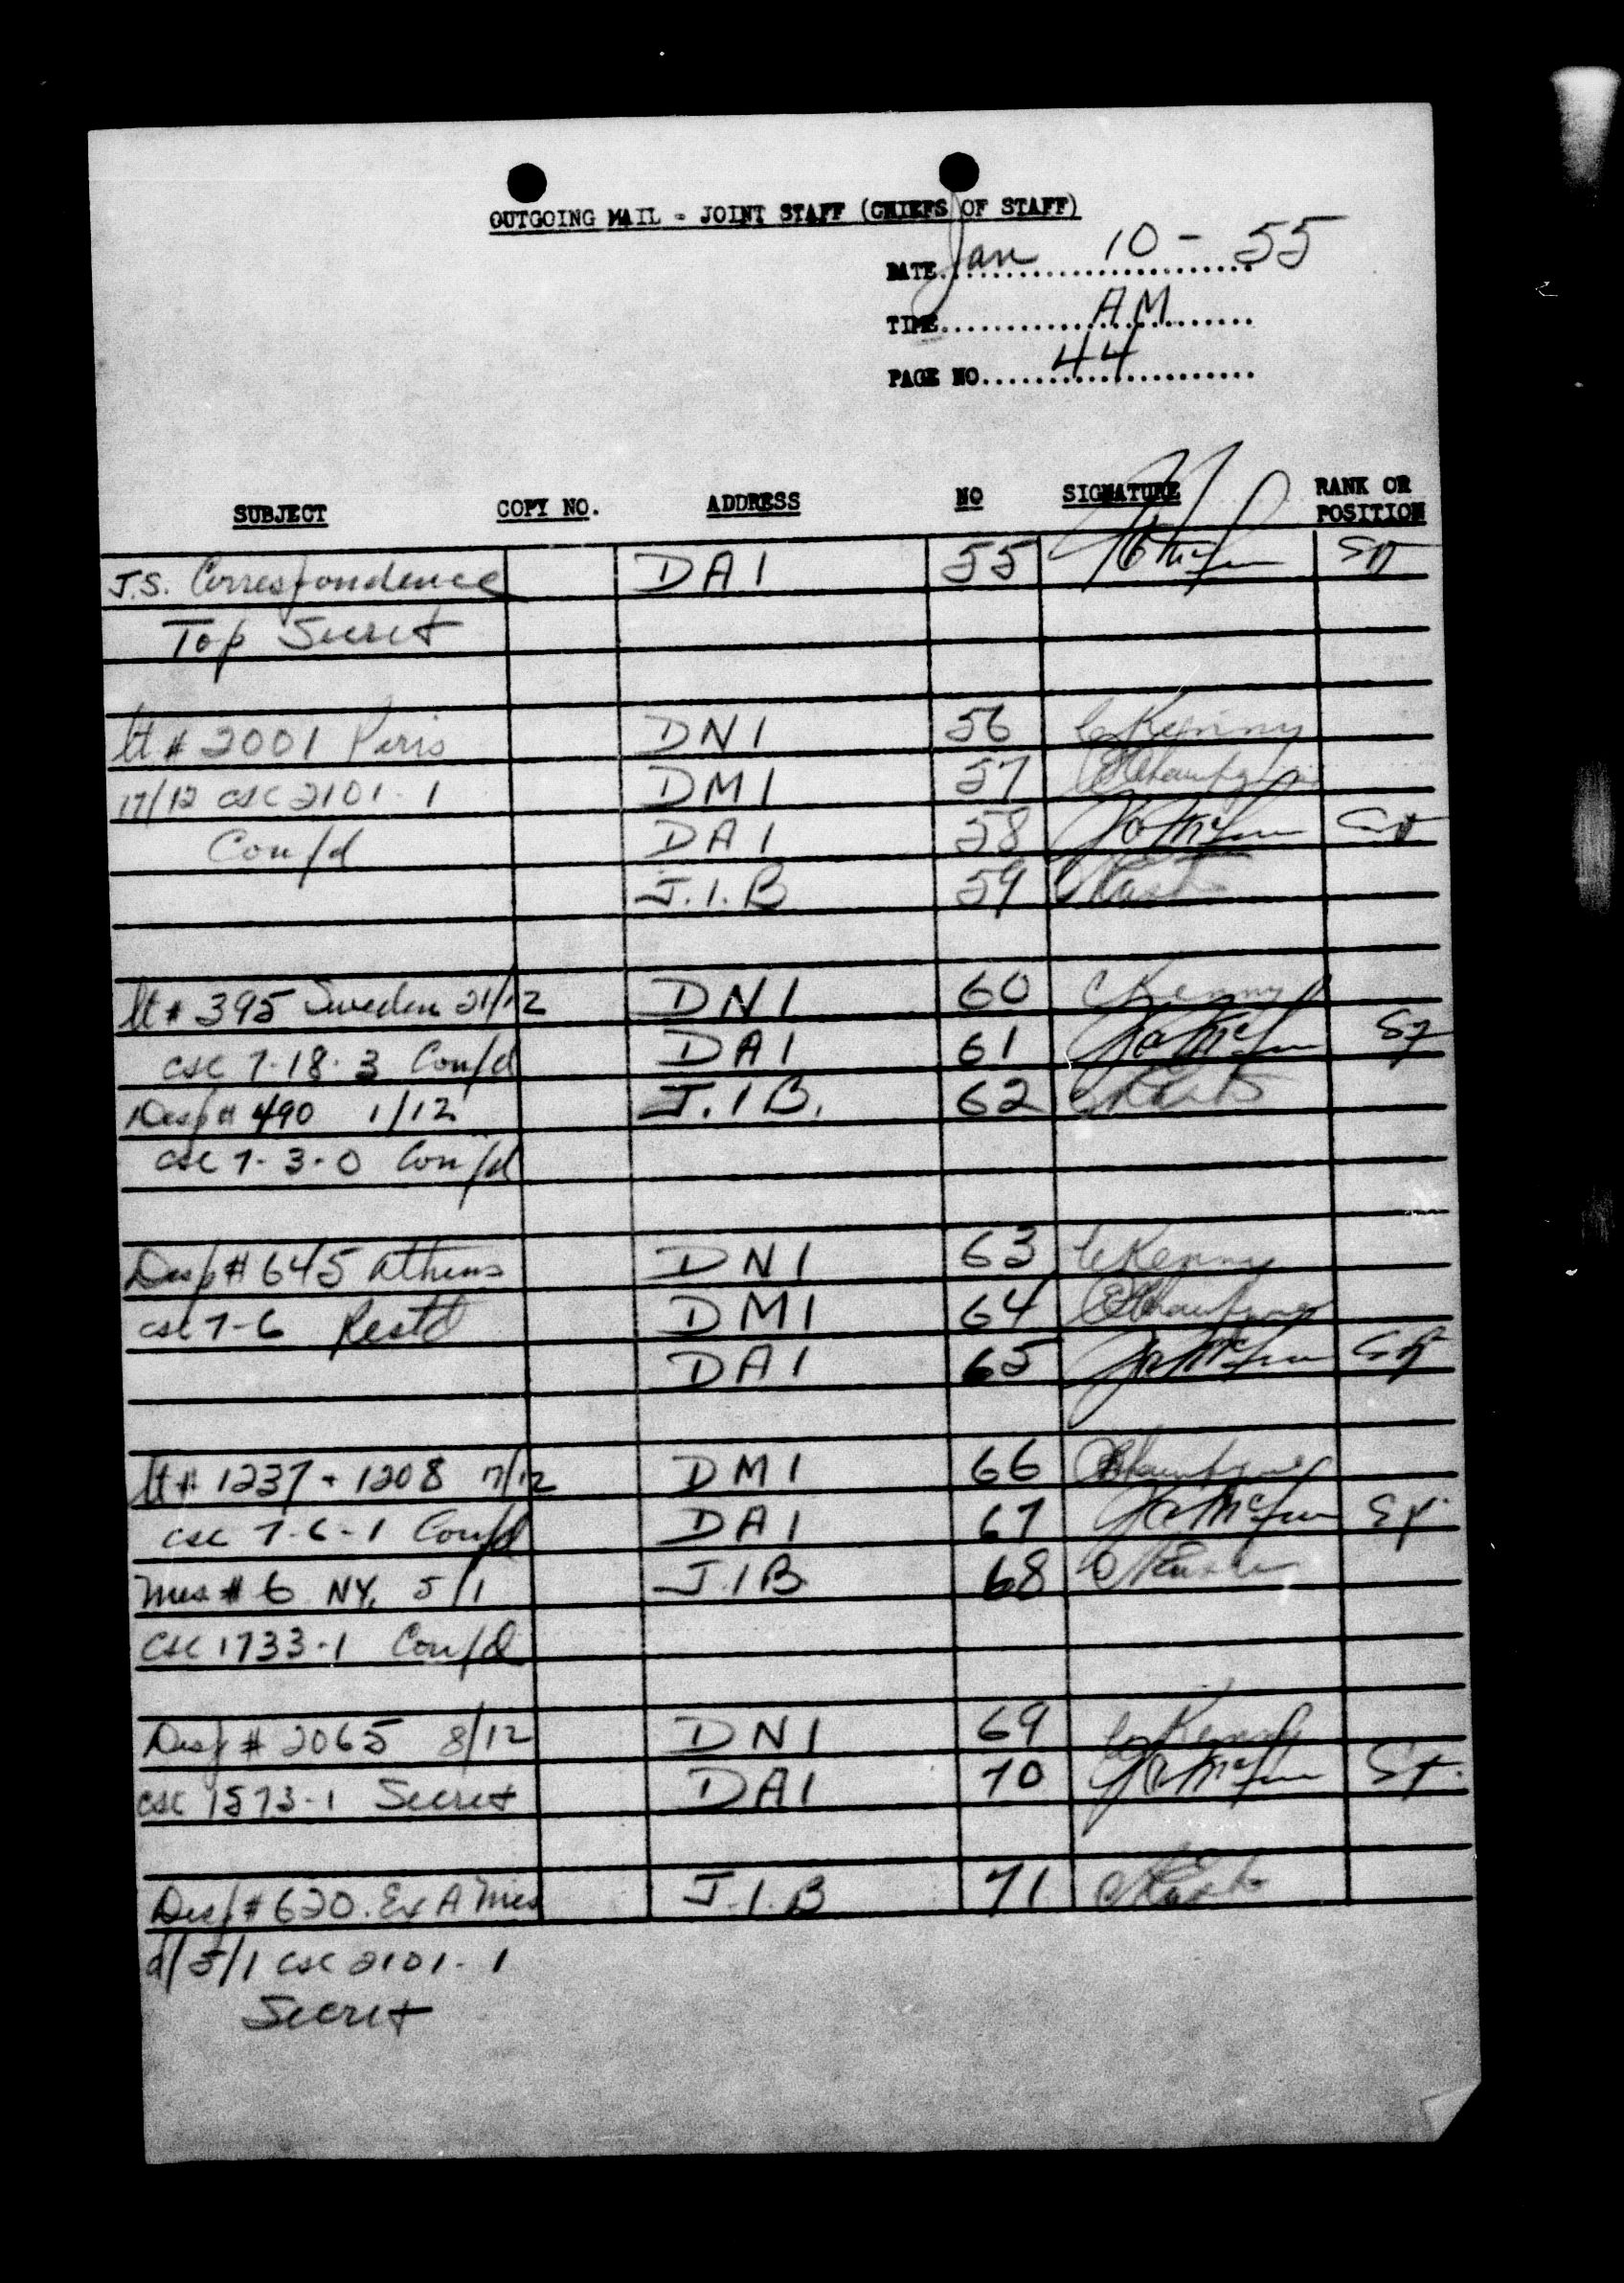 OUTGOING MAIL - JOINT STAFF (CHIEFS OF STAFF)
DATE Jan 10 - 55
TIME AM
PAGE NO 44
SUBJECT COPY NO. ADDRESS NO SIGNATURE RANK OR POSITION
J.S. Correspondence DAI 55
Top Secret
lt # 2001 Paris DNI 56 C Kenny
17/12 CSC 2101-1 DMI 57
Conf'd DAI 58
J.I.B 59
lt # 395 Sweden 21/12 DNI 60 C Kenny
CSC 7-18-3 Conf'd DAI 61
Desp # 490 1/12 J.I.B. 62
CSC 7-3-0 Conf'd
Desp # 645 Athens DNI 63 C Kenny
CSC 7-6 Rest'd DMI 64
DAI 65
lt # 1237 + 1208 17/12 DMI 66
CSC 7-6-1 Conf'd DAI 67
Mes # 6 NY. 5/1 J.I.B. 68
CSC 1733-1 Conf'd
Desp # 2065 8/12 DNI 69 C Kenny
CSC 1573-1 Secret DAI 70
Desp # 620. Ex A Mes J.I.B 71
d/5/1 CSC 2101-1
Secret